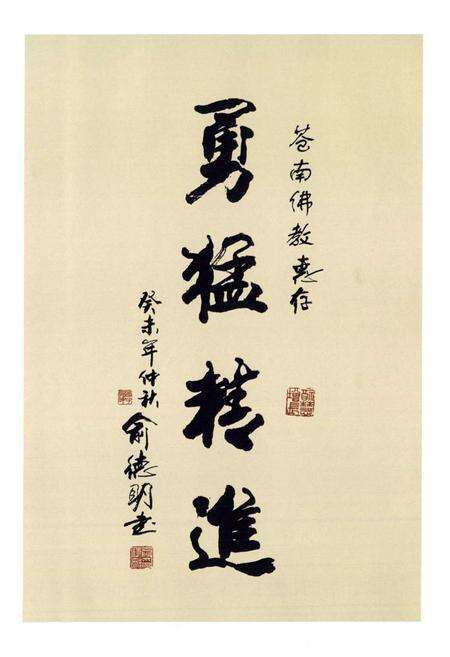 苍南佛教惠存
勇猛精進
癸未年仲秋
俞德明书